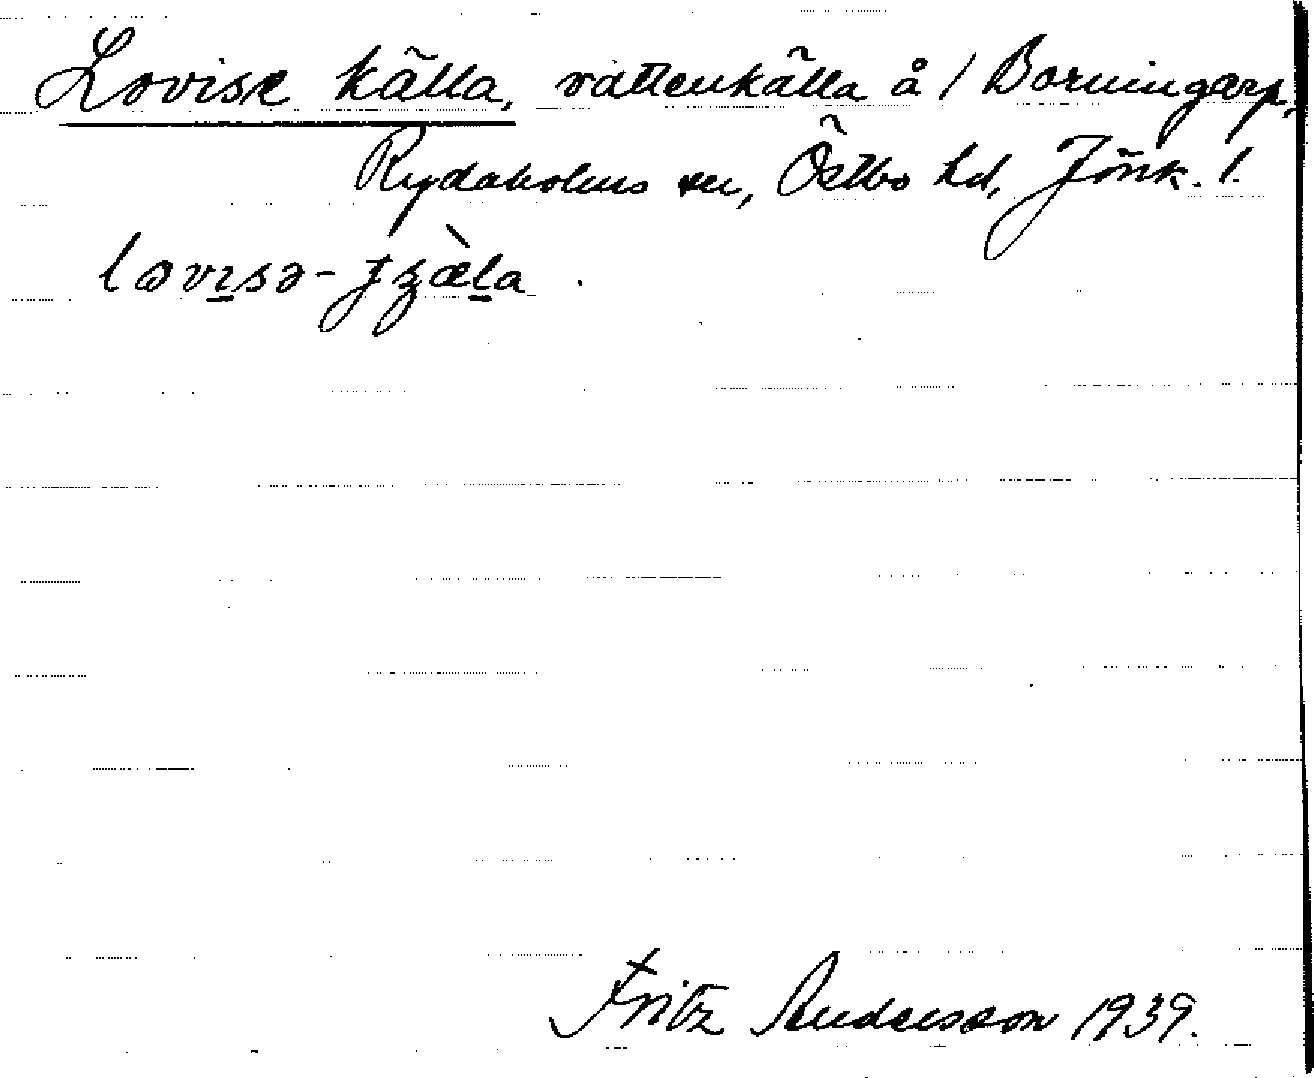 Lovise källa, vattenkälla å / Borningarp,
Rydaholms sn, Östbo hd, Jönk. l.
ləvısə-ȷʒæ̀la.
Fritz Andersson 1939.